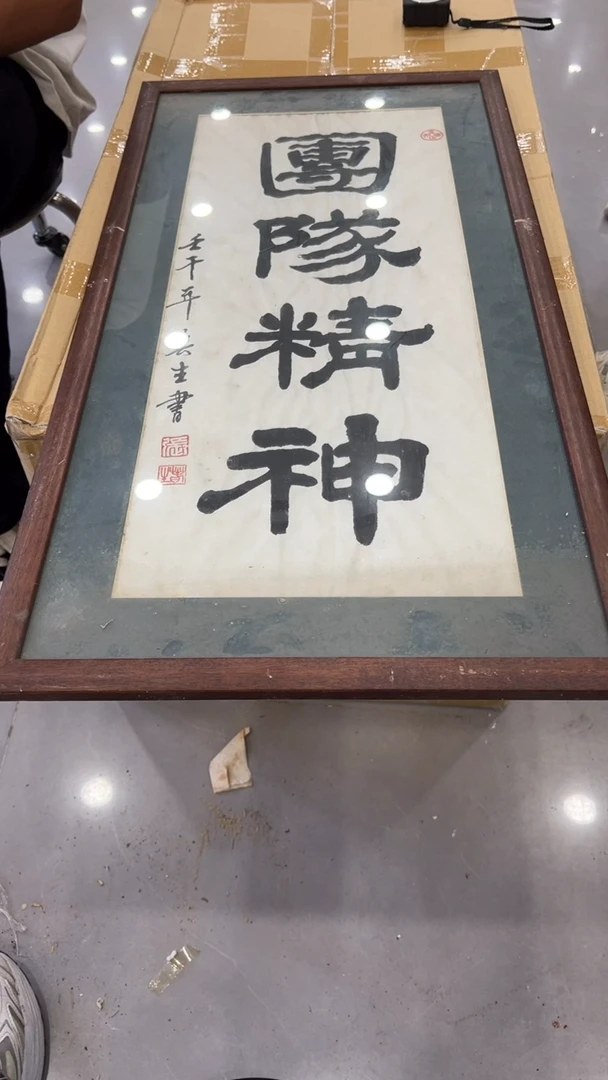 團隊精神
壬午年 生書